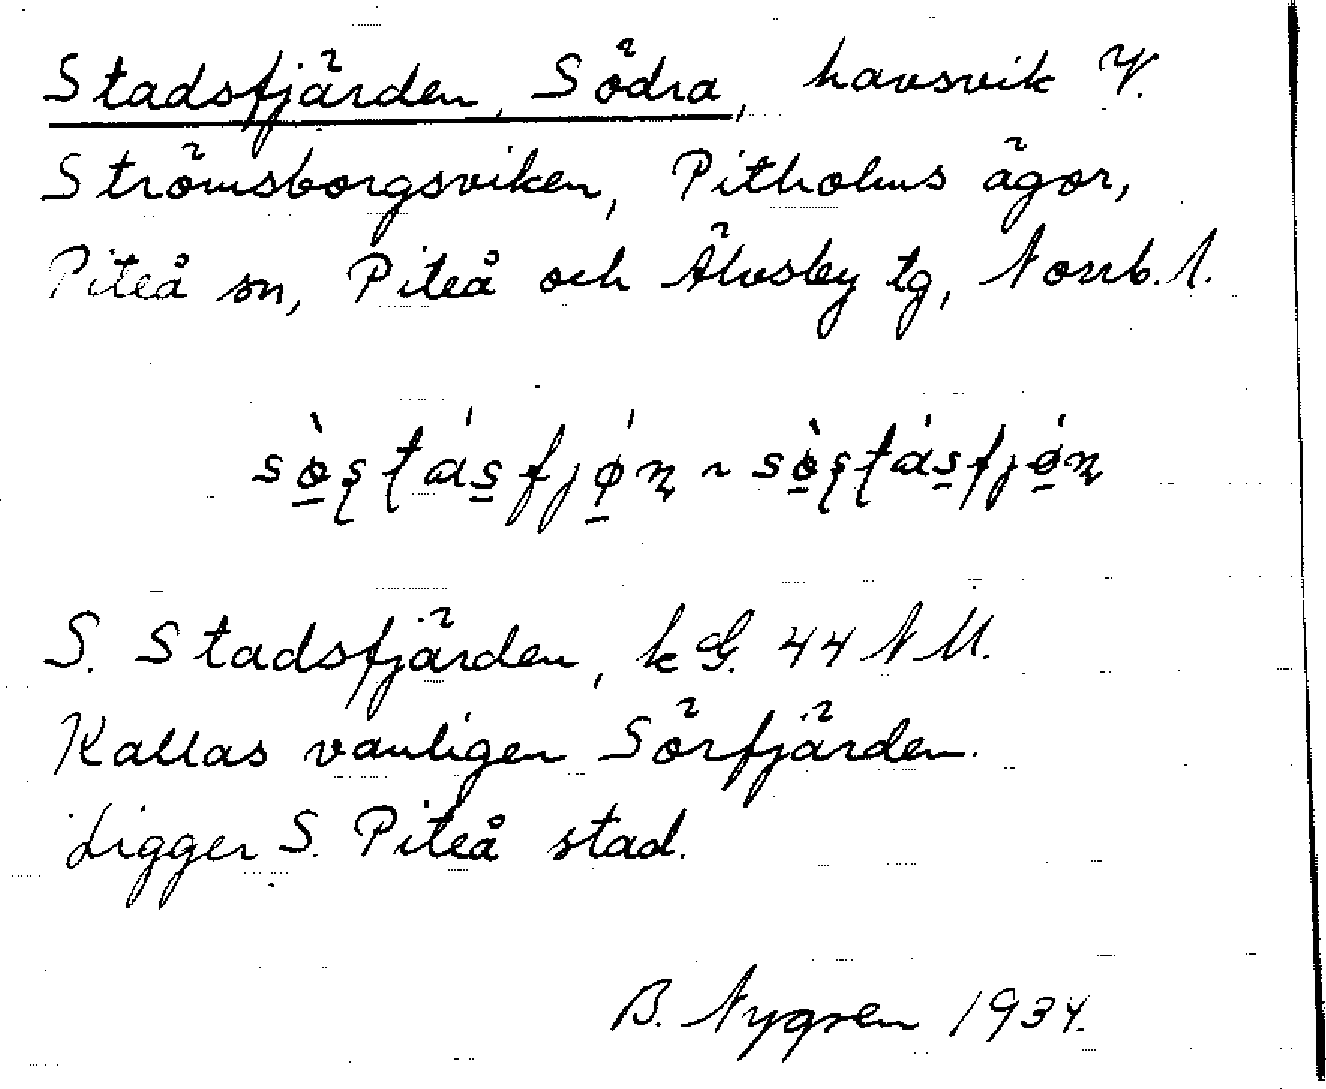 Stadsfjärden, Södra, havsvik V.
Strömsborgsviken, Pitholms ägor,
Piteå sn, Piteå och Älvsby tg, Norrb. l.
S. Stadsfjärden, k G. 44 NU.
Kallas vanligen Sörfjärden.
Ligger S. Piteå stad.
B. Nygren 1934.